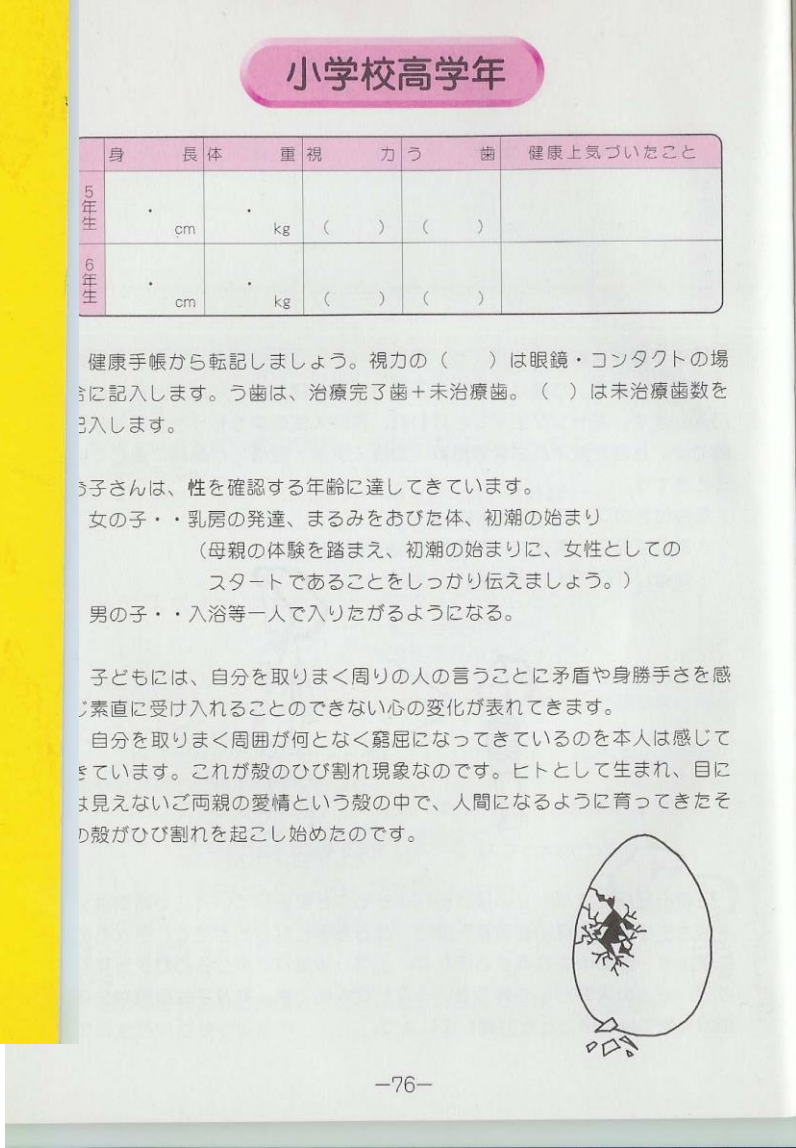 小学校高学年
身長 体重 視力 う歯 健康上気づいたこと
5年生 ・ cm ・ kg ( ) ( )
6年生 ・ cm ・ kg ( ) ( )
健康手帳から転記しましょう。視力の(　　)は眼鏡・コンタクトの場
に記入します。う歯は、治療完了歯＋未治療歯。(　)は未治療歯数を
入します。
子さんは、性を確認する年齢に達してきています。
女の子・・乳房の発達、まるみをおびた体、初潮の始まり
（母親の体験を踏まえ、初潮の始まりに、女性としての
スタートであることをしっかり伝えましょう。）
男の子・・入浴等一人で入りたがるようになる。
子どもには、自分を取りまく周りの人の言うことに矛盾や身勝手さを感
じ素直に受け入れることのできない心の変化が表れてきます。
自分を取りまく周囲が何となく窮屈になってきているのを本人は感じて
きています。これが殻のひび割れ現象なのです。ヒトとして生まれ、目に
は見えないご両親の愛情という殻の中で、人間になるように育ってきたそ
の殻がひび割れを起こし始めたのです。
—76—